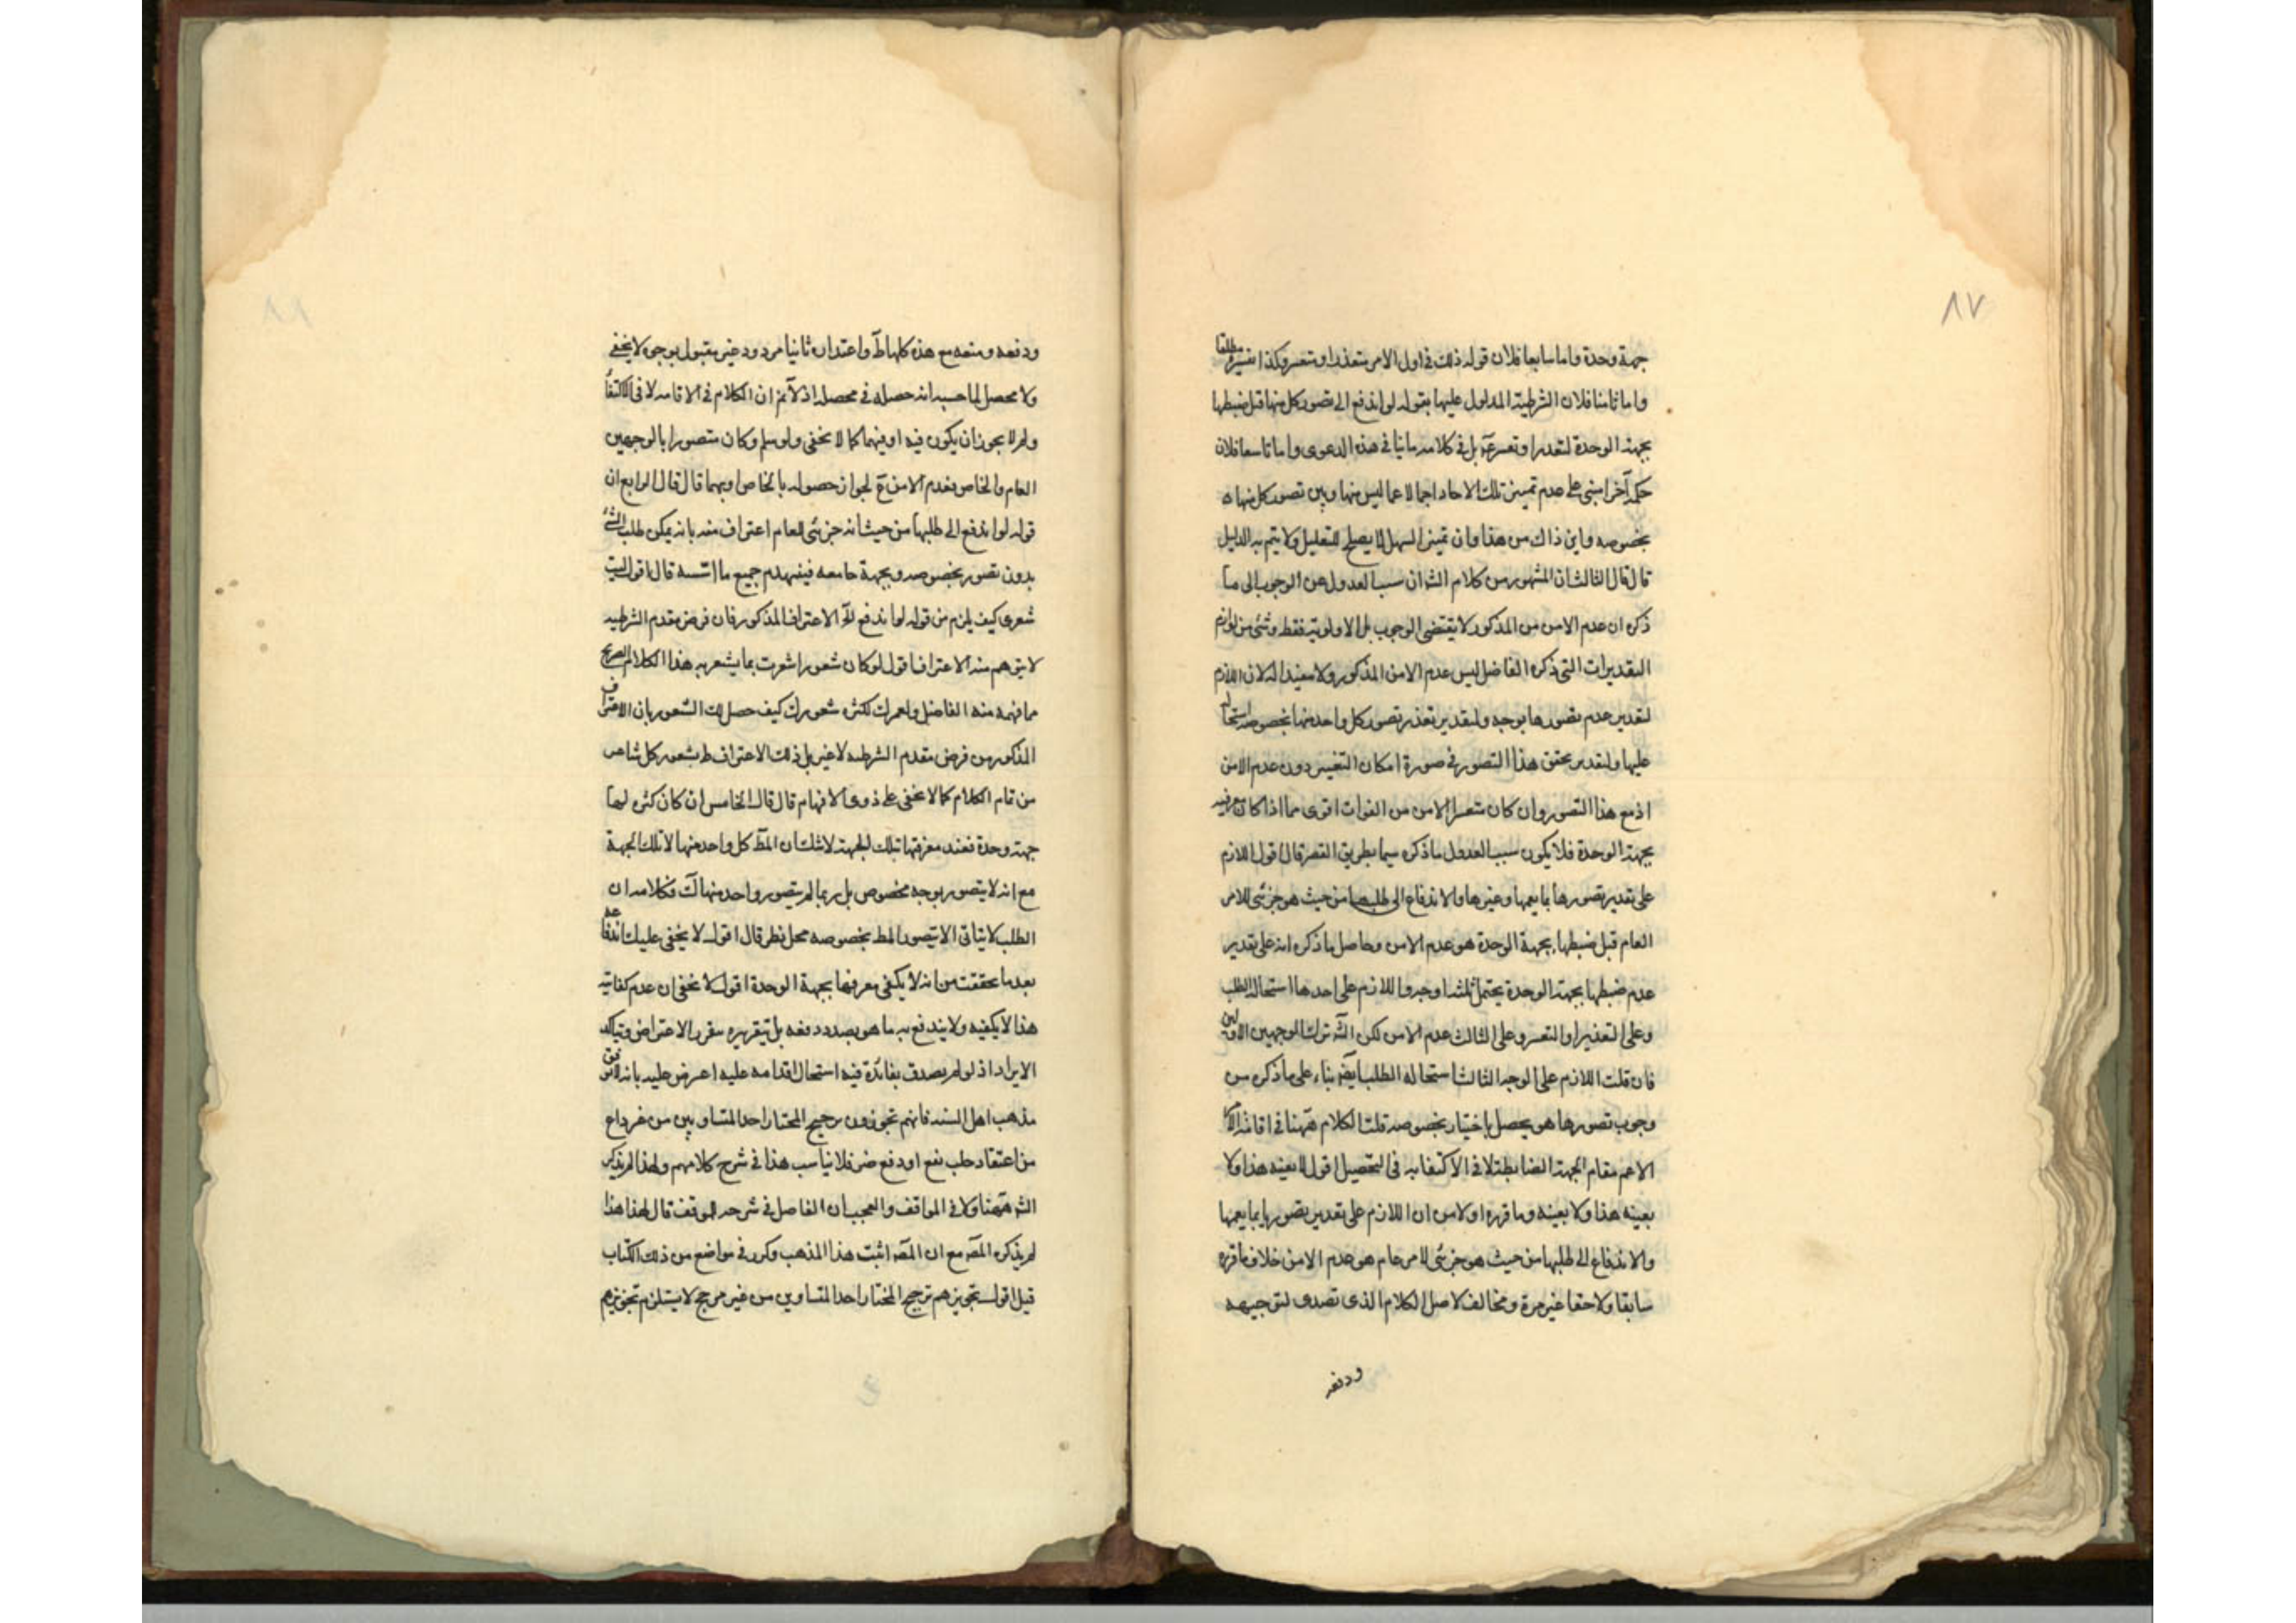 ٨٧
جهة وحدة واما سابعا فلان قوله ذلك فى اول الامر متعذر او متعسر وكذا تفسيره مطلقا
واما ثامنا فلان الشرطية المدلول عليها بقوله لو اندفع الى تصور كل منها قبل ضبطها
بجهة الوحدة لتعذر او تعسر بل فى كلامه ما ينافى هذه الدعوى واما تاسعا فلان
حكمه آخرا مبنى على عدم تميز تلك الاحاد اجمالا عما ليس منها وبين تصور كل منها
بخصوصه واين ذاك من هذا وان تميز السهل لا يصلح للتعليل ولا يتم به الدليل
قال قال الثالث ان المشهور من كلام الش ان سبب العدول عن الوجوب الى ما
ذكره ان عدم الامن من المذكور لا يقتضى الوجوب بل الاولوية فقط وشئ من لوازم
التقديرات التى ذكره الفاضل ليس عدم الامن المذكور ولا مفيدا له لان اللازم
لتقدير عدم تصورها بوجه ولتقدير تعذر تصور كل واحد منها بخصوصه استحالة
عليها ولتقدير تحقق هذا التصور فى صورة امكان التعسر دون عدم الامن
اذ مع هذا التصور وان كان متعسرا الامن من الفوات اقوى مما اذا كان معرفته
بجهة الوحدة فلا يكون سبب العدول ما ذكره سيما بطريق القصر قال اقول اللازم
على تقدير تصورها بما يعمها وغيرها والاندفاع الى طلبها من حيث هو جزئى للامر
العام قبل ضبطها بجهة الوحدة هو عدم الامن وحاصل ما ذكره انه على تقدير
عدم ضبطها بجهة الوحدة يحتمل ثلثة اوجه واللازم على احدها استحالة الطلب
وعلى التعذير او التعسر وعلى الثالث عدم الامن لكن الش ترك الوجهين الاولين
فان قلت اللازم على الوجه الثالث استحالة الطلب ايض بناء على ما ذكره من
وجوب تصورها هو يحصل باختيار بخصوصه قلت الكلام ههنا فى اقامة الامر
الاعم مقام الجهة الضابطة لا فى الاكتفاء به فى التحصيل اقول لا يعينه هذا ولا
يعينه هذا ولا يعينه وما قرره اولا من ان اللازم على تقدير تصورها بما يعمها
والاندفاع الى طلبها من حيث هو جزئى لامر عام هو عدم الامن خلاف ما قرره
سابقا ولاحقا غير مرة ومخالف لاصل الكلام الذى تصدى لتوجيهه
ودفعه
٨٨
ودفعه ومنعه مع هذه كلها ط واعتذاره ثانيا مردود غير مقبول بوجوه لا يخفى
ولا محصل لما حسب انه حصله فى محصله اذ لا نم ان الكلام فى الاقامة لا فى الاكتفاء
ولم لا يجوز ان يكون فيه او فيهما كما لا يخفى ولو سلم وكان متصورا بالوجهين
العام والخاص فعدم الامن ع لجواز حصوله بالخاص او بهما قال قال الرابع ان
قوله لو اندفع الى طلبها من حيث انه جزئى للعام اعتراف منه بانه يمكن طلب الشئ
بدون تصوره بخصوصه وبجهة جامعه فينهدم جميع ما اسسه قال اقول ليت
شعرى كيف يلزم من قوله لو اندفع الخ الاعتراف المذكور فان فرض مقدم الشرطيه
لا يتوهم منه الاعتراف اقول لو كان شعورا شعرت بما يشعر به هذا الكلام الصريح
ما فهمه منه الفاضل ولعمرك لكثرة شعورك كيف حصل لك الشعور بان الاعتراف
المذكور من فرض مقدم الشرطيه لا غير بل ذلك الاعتراف ط بشعور كل شاعر
من تام الكلام كما لا يخفى على ذوى الافهام قال قال الخامس ان كان كثره لها
جهة وحدة فعند معرفتها بتلك الجهة لا شك ان المط كل واحد منها لا تلك الجهة
مع انه لا يتصور بوجه مخصوص بل ربما لم يتصور واحد منها كك فكلامه ان
الطلب لا يتاتى الا بتصور المط بخصوصه محل نظر قال اقول لا يخفى عليك اندفاعه
بعد ما تحققت من انه لا يكفى معرفتها بجهة الوحدة اقول لا يخفى ان عدم كفايته
هذا لا يكفيه ولا يندفع به ما هو بصدد دفعه بل بتقريره تقرر الاعتراض وتياكد
الايراد اذ لو لم يصدق بفائدة فيه استحال اقدامه عليه اعترض عليه بانه لا يوافق
مذهب اهل السنه فانهم تجوزون ترجيح المختار احد المتساويين من غير داع
من اعتقاد جلب نفع او دفع ضر فلا يناسب هذا فى شرح كلامهم ولهذا لم يذكره
الش ههنا ولا فى المواقف والعجب ان الفاضل فى شرحه للموقف قال لهذا هذا
لم يذكره المص مع ان المص اثبت هذا المذهب وكرر فى مواضع من ذلك الكتاب
قيل اقول تجويزهم ترجيح المختار احد المتساويين من غير مرجح لا يستلزم تجويزهم